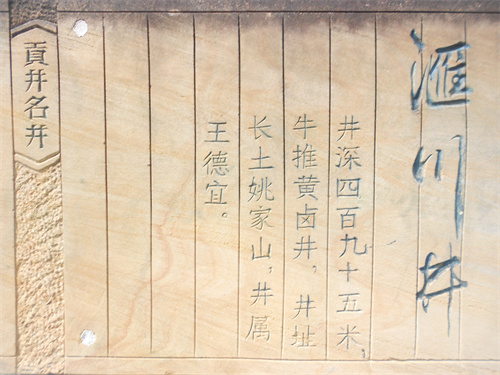 滙川井
井深四百九十五米,
牛推黄卤井。井址
长土姚家山,井属
王德宜。
貢井名井